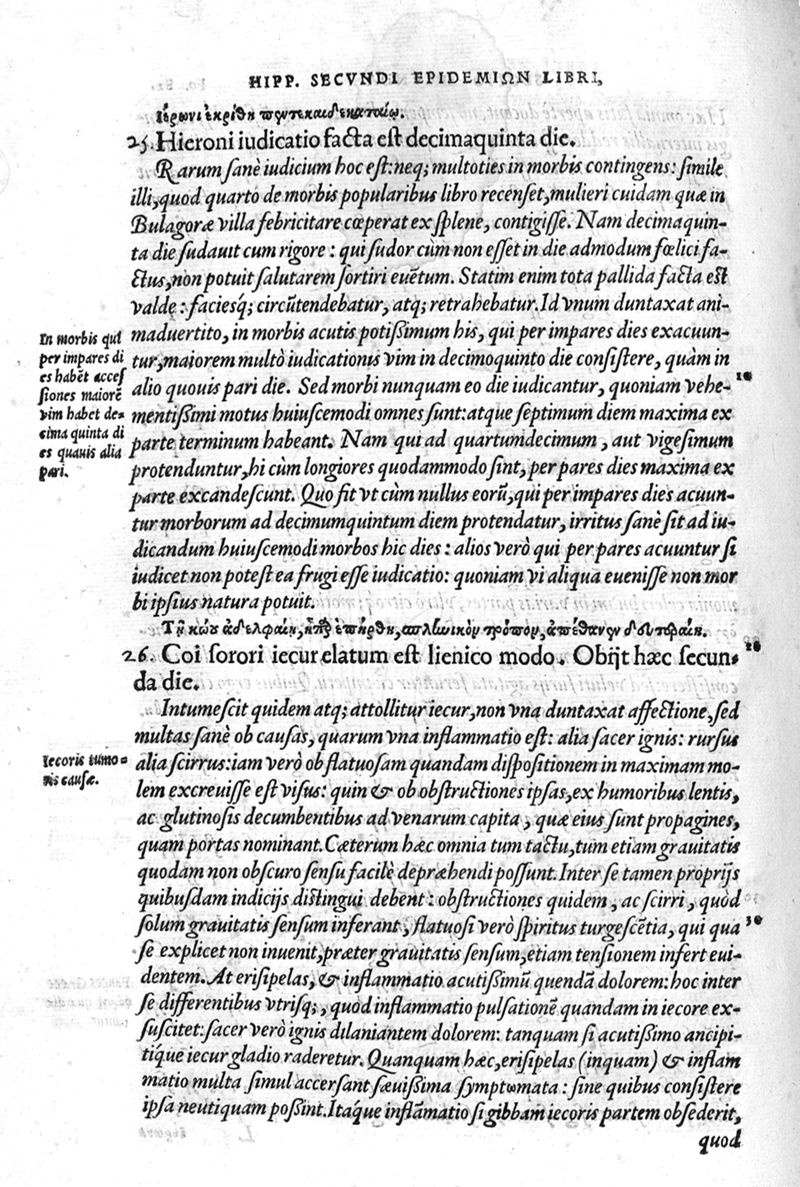 HIPP. SECVNDI EPIDEMIΩN LIBRI,
Ἱέρωνι ἐκρίθη πεντεκαιδεκαταίῳ.
25. Hieroni iudicatio facta est decimaquinta die.
Rarum sanè iudicium hoc est: neq; multoties in morbis contingens: simile
illi, quod quarto de morbis popularibus libro recenset, mulieri cuidam quæ in
Bulagoræ villa febricitare cœperat ex splene, contigisse. Nam decimaquin-
ta die sudauit cum rigore: qui sudor cùm non esset in die admodum fœlici fa-
ctus, non potuit salutarem sortiri euẽtum. Statim enim tota pallida facta est
valdę: faciesq́; circũtendebatur, atq; retrahebatur. Id vnum duntaxat ani-
maduertito, in morbis acutis potißimum his, qui per impares dies exacuun-
tur, maiorem multò iudicationis vim in decimoquinto die consistere, quàm in
alio quouis pari die. Sed morbi nunquam eo die iudicantur, quoniam vehe-
mentißimi motus huiuscemodi omnes sunt: atque septimum diem maxima ex
parte terminum habeant. Nam qui ad quartumdecimum, aut vigesimum
protenduntur, hi cùm longiores quodammodo sint, per pares dies maxima ex
parte excandescunt. Quo fit vt cùm nullus eorũ, qui per impares dies acuun-
tur morborum ad decimumquintum diem protendatur, irritus sanè sit ad iu-
dicandum huiuscemodi morbos hic dies: alios verò qui per pares acuuntur si
iudicet non potest ea frugi esse iudicatio: quoniam vi aliqua euenisse non mor
bi ipsius natura potuit.
In morbis qui
per impares di
es habẽt acces
siones maiorẽ
vim habet de-
cima quinta di
es quauis alia
pari.
10
Τῇ κώου ἀδελφεῇ, ἧπαρ ἐπήρθη, σπληνικὸν τρόπον, ἀπέθανεν δευτεραίη.
26. Coi sorori iecur elatum est lienico modo. Obijt hæc secun-
da die.
20
Intumescit quidem atq; attollitur iecur, non vna duntaxat affectione, sed
multas sanè ob causas, quarum vna inflammatio est: alia sacer ignis: rursus
alia scirrus: iam verò ob flatuosam quandam dispositionem in maximam mo-
lem excreuisse est visus: quin & ob obstructiones ipsas, ex humoribus lentis,
ac glutinosis decumbentibus ad venarum capita, quæ eius sunt propagines,
quam portas nominant. Cæterum hæc omnia tum tactu, tum etiam grauitatis
quodam non obscuro sensu facilè depræhendi possunt. Inter se tamen proprijs
quibusdam indicijs distingui debent: obstructiones quidem, ac scirri, quòd
solum grauitatis sensum inferant, flatuosi verò spiritus turgescẽtia, qui qua
se explicet non inuenit, præter grauitatis sensum, etiam tensionem infert eui-
dentem. At erisipelas, & inflammatio acutißimũ quendã dolorem: hoc inter
se differentibus vtrisq;, quod inflammatio pulsationẽ quandam in iecore ex-
suscitet: sacer verò ignis dilaniantem dolorem: tanquam si acutißimo ancipi-
tíque iecur gladio raderetur. Quanquam hæc, erisipelas (inquam) & inflam
matio multa simul accersant sæuißima symptomata: sine quibus consistere
ipsa neutiquam possint. Itaque inflãmatio si gibbam iecoris partem obsederit,
Iecoris tumo-
ris causæ.
30
quod